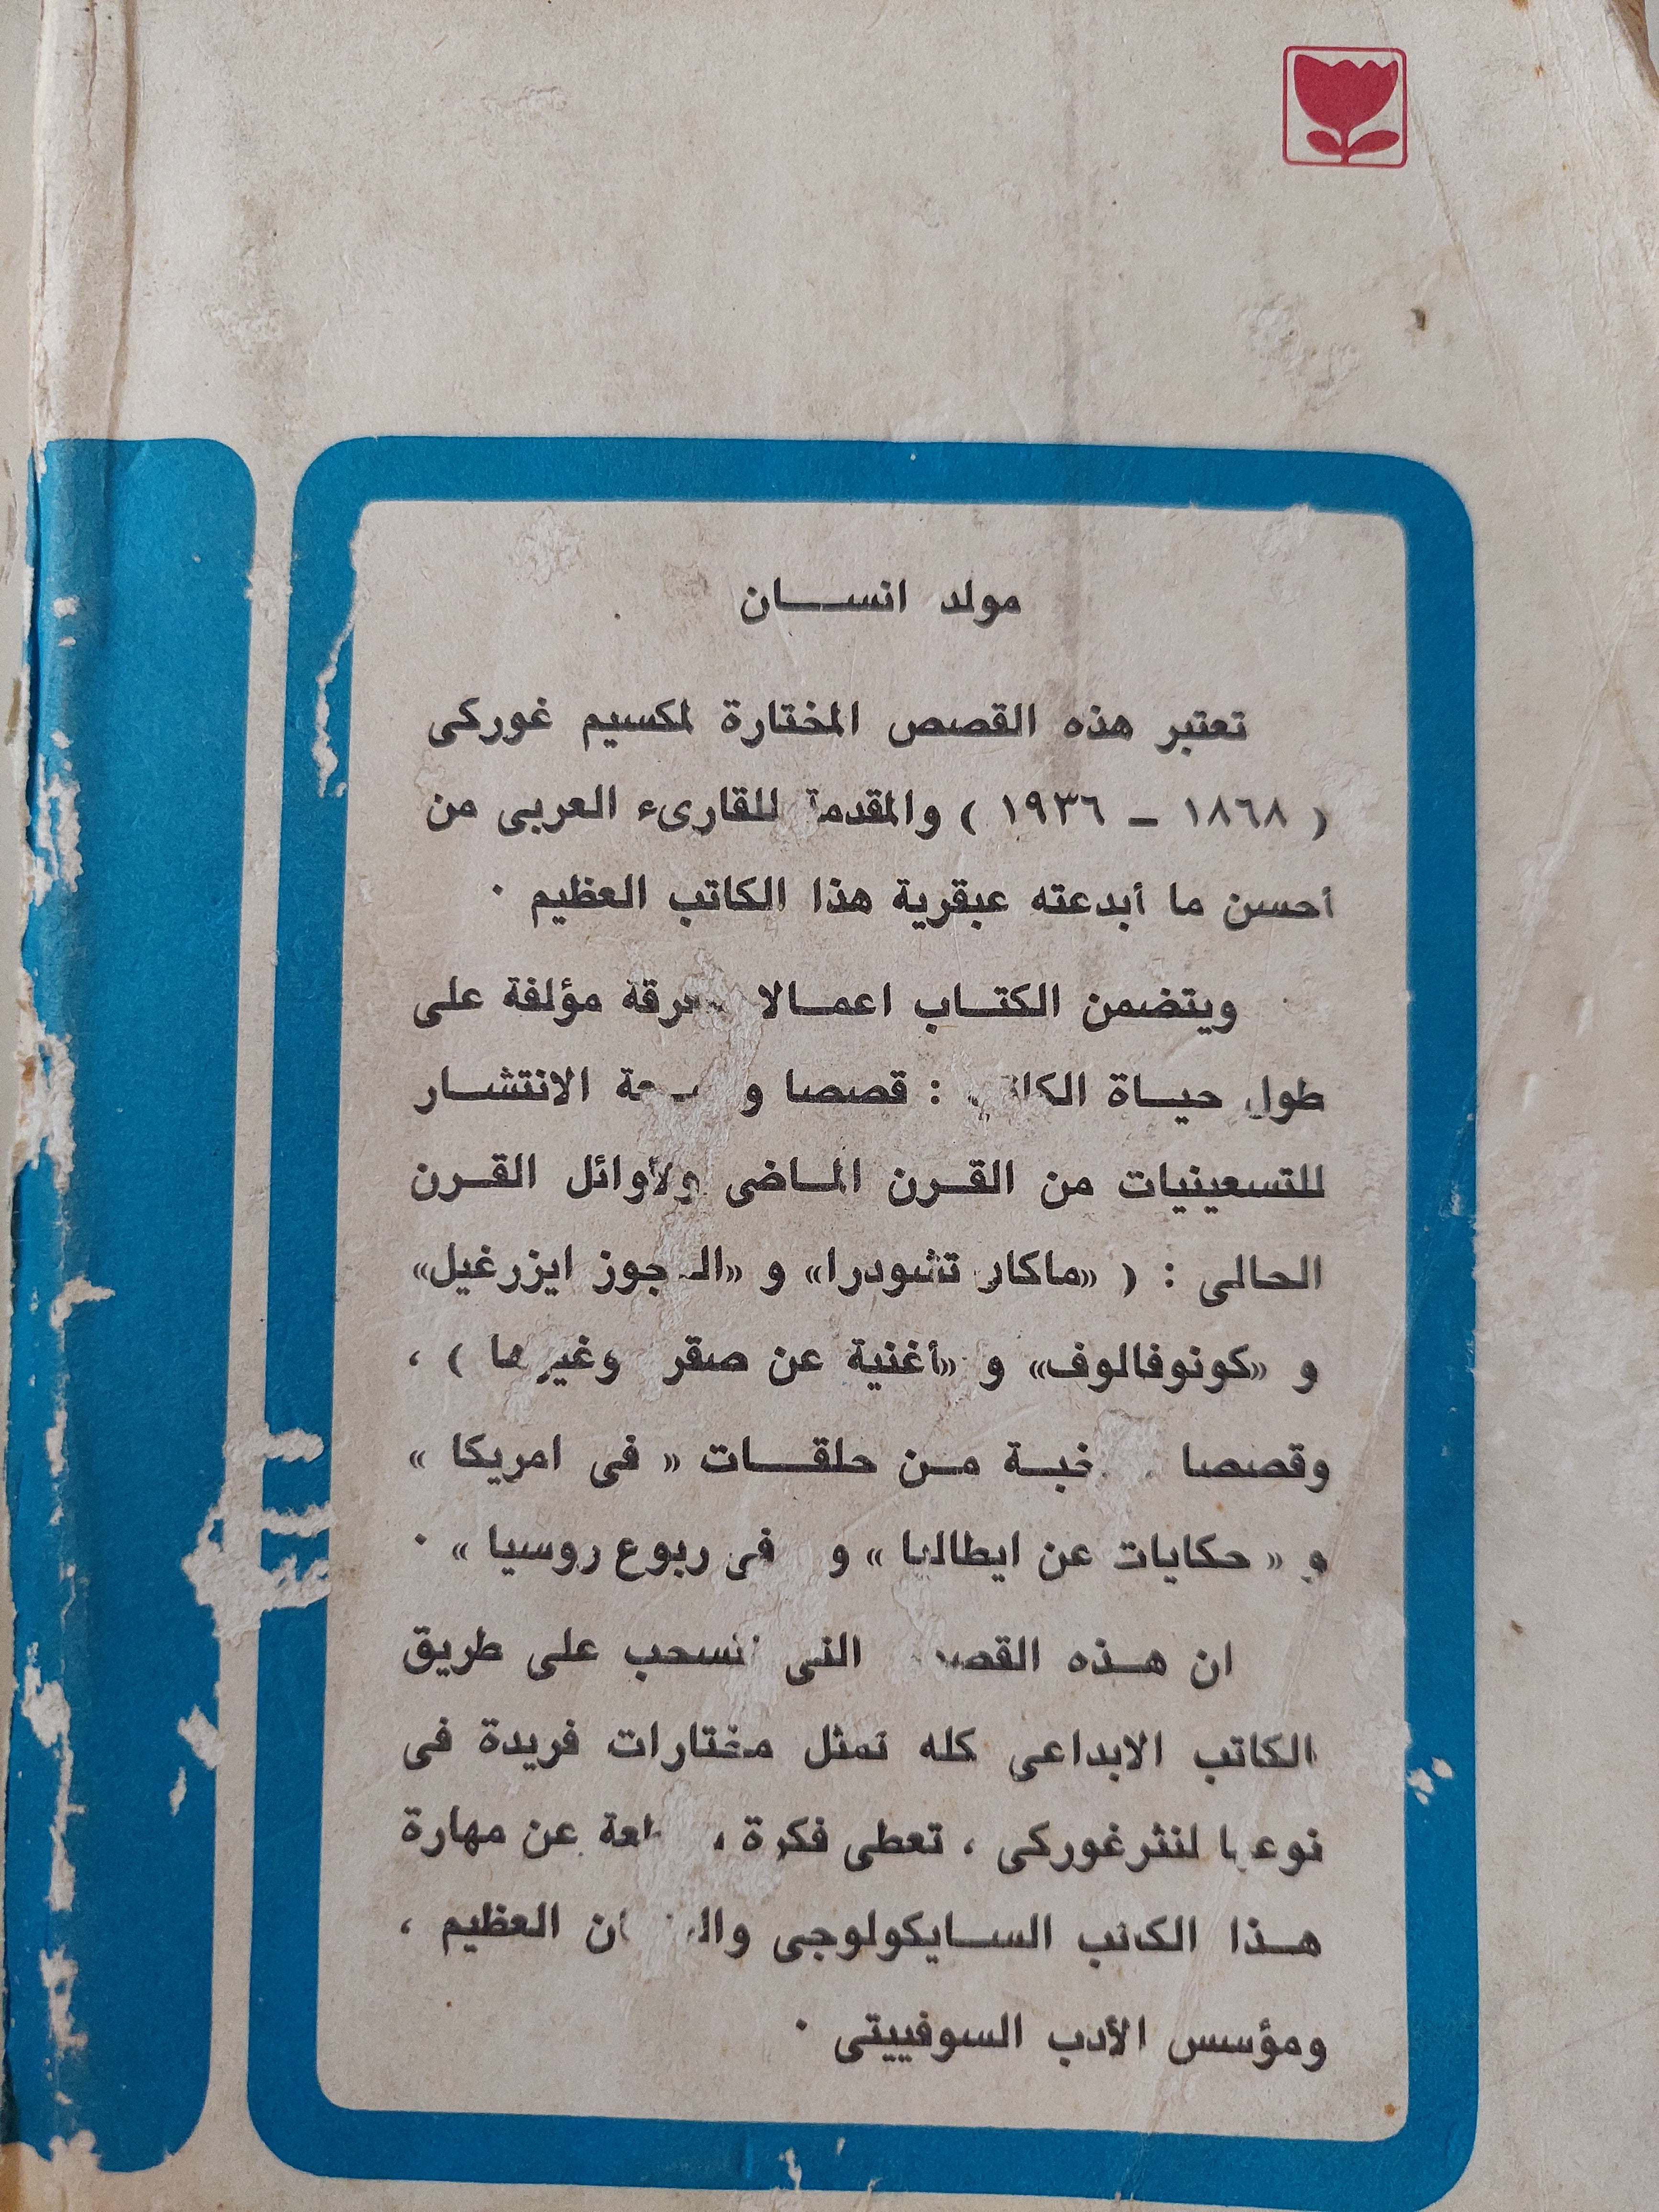 مولد انســـان
تعتبر هذه القصص المختارة لمكسيم غوركى
( ١٨٦٨ ــ ١٩٣٦ ) والمقدمة للقارىء العربى من
أحسن ما أبدعته عبقرية هذا الكاتب العظيم ٠
ويتضمن الكتــاب اعمــالا مؤلفة على
طول حيــاة الكاتب : قصصا الانتشــار
للتسعينيات من القــرن المــاضى ولأوائل القــرن
الحالى : ( «ماكار تشودرا» و «العجوز ايزرغيل»
و «كونوفالوف» و «أغنية عن صقر وغيرها ) ،
وقصصا مــن حلقـــات « فى امريكا »
و « حكايات عن ايطاليا » و فى ربوع روسيا » ٠
ان هــذه القصص التى تنسحب على طريق
الكاتب الابداعى كله تمثل مختارات فريدة فى
نوعها لنثر غوركى ، تعطى فكرة عن مهارة
هــذا الكاتب الســايكولوجى العظيم ،
ومؤسس الأدب السوفييتى ٠